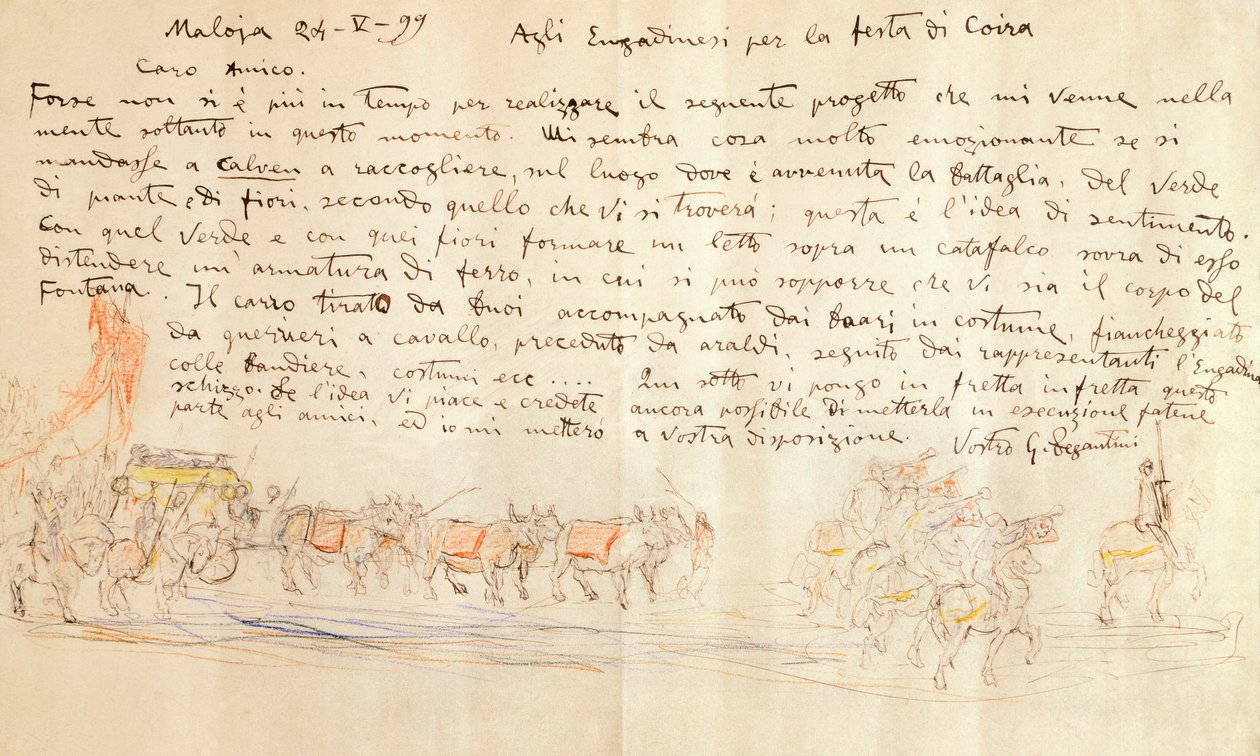 Maloja 24-V-99 Agli Engadinesi per la festa di Coira
Caro Amico.
Forse non si è più in tempo per realizzare il seguente progetto che mi venne nella
mente soltanto in questo momento. Mi sembra cosa molto emozionante se si
mandasse a Calven a raccogliere, sul luogo dove è avvenuta la battaglia, del verde
di piante e di fiori, secondo quello che vi si troverá; questa é l'idea di sentimento.
Con quel verde e con quei fiori formare un letto sopra un catafalco sovra di esso
distendere un'armatura di ferro, in cui si può sopporre che vi sia il corpo del
Fontana. Il carro tirato da buoi accompagnato dai boari in costume, fiancheggiato
da guerrieri a cavallo, preceduto da araldi, seguito dai rappresentanti l'Engadina
colle bandiere, costumi ecc .... Qui sotto vi pongo in fretta in fretta questo
schizzo. Se l'idea vi piace e credete ancora possibile di metterla in esecuzione fatene
parte agli amici, ed io mi metteró a vostra disposizione. Vostro G. Segantini